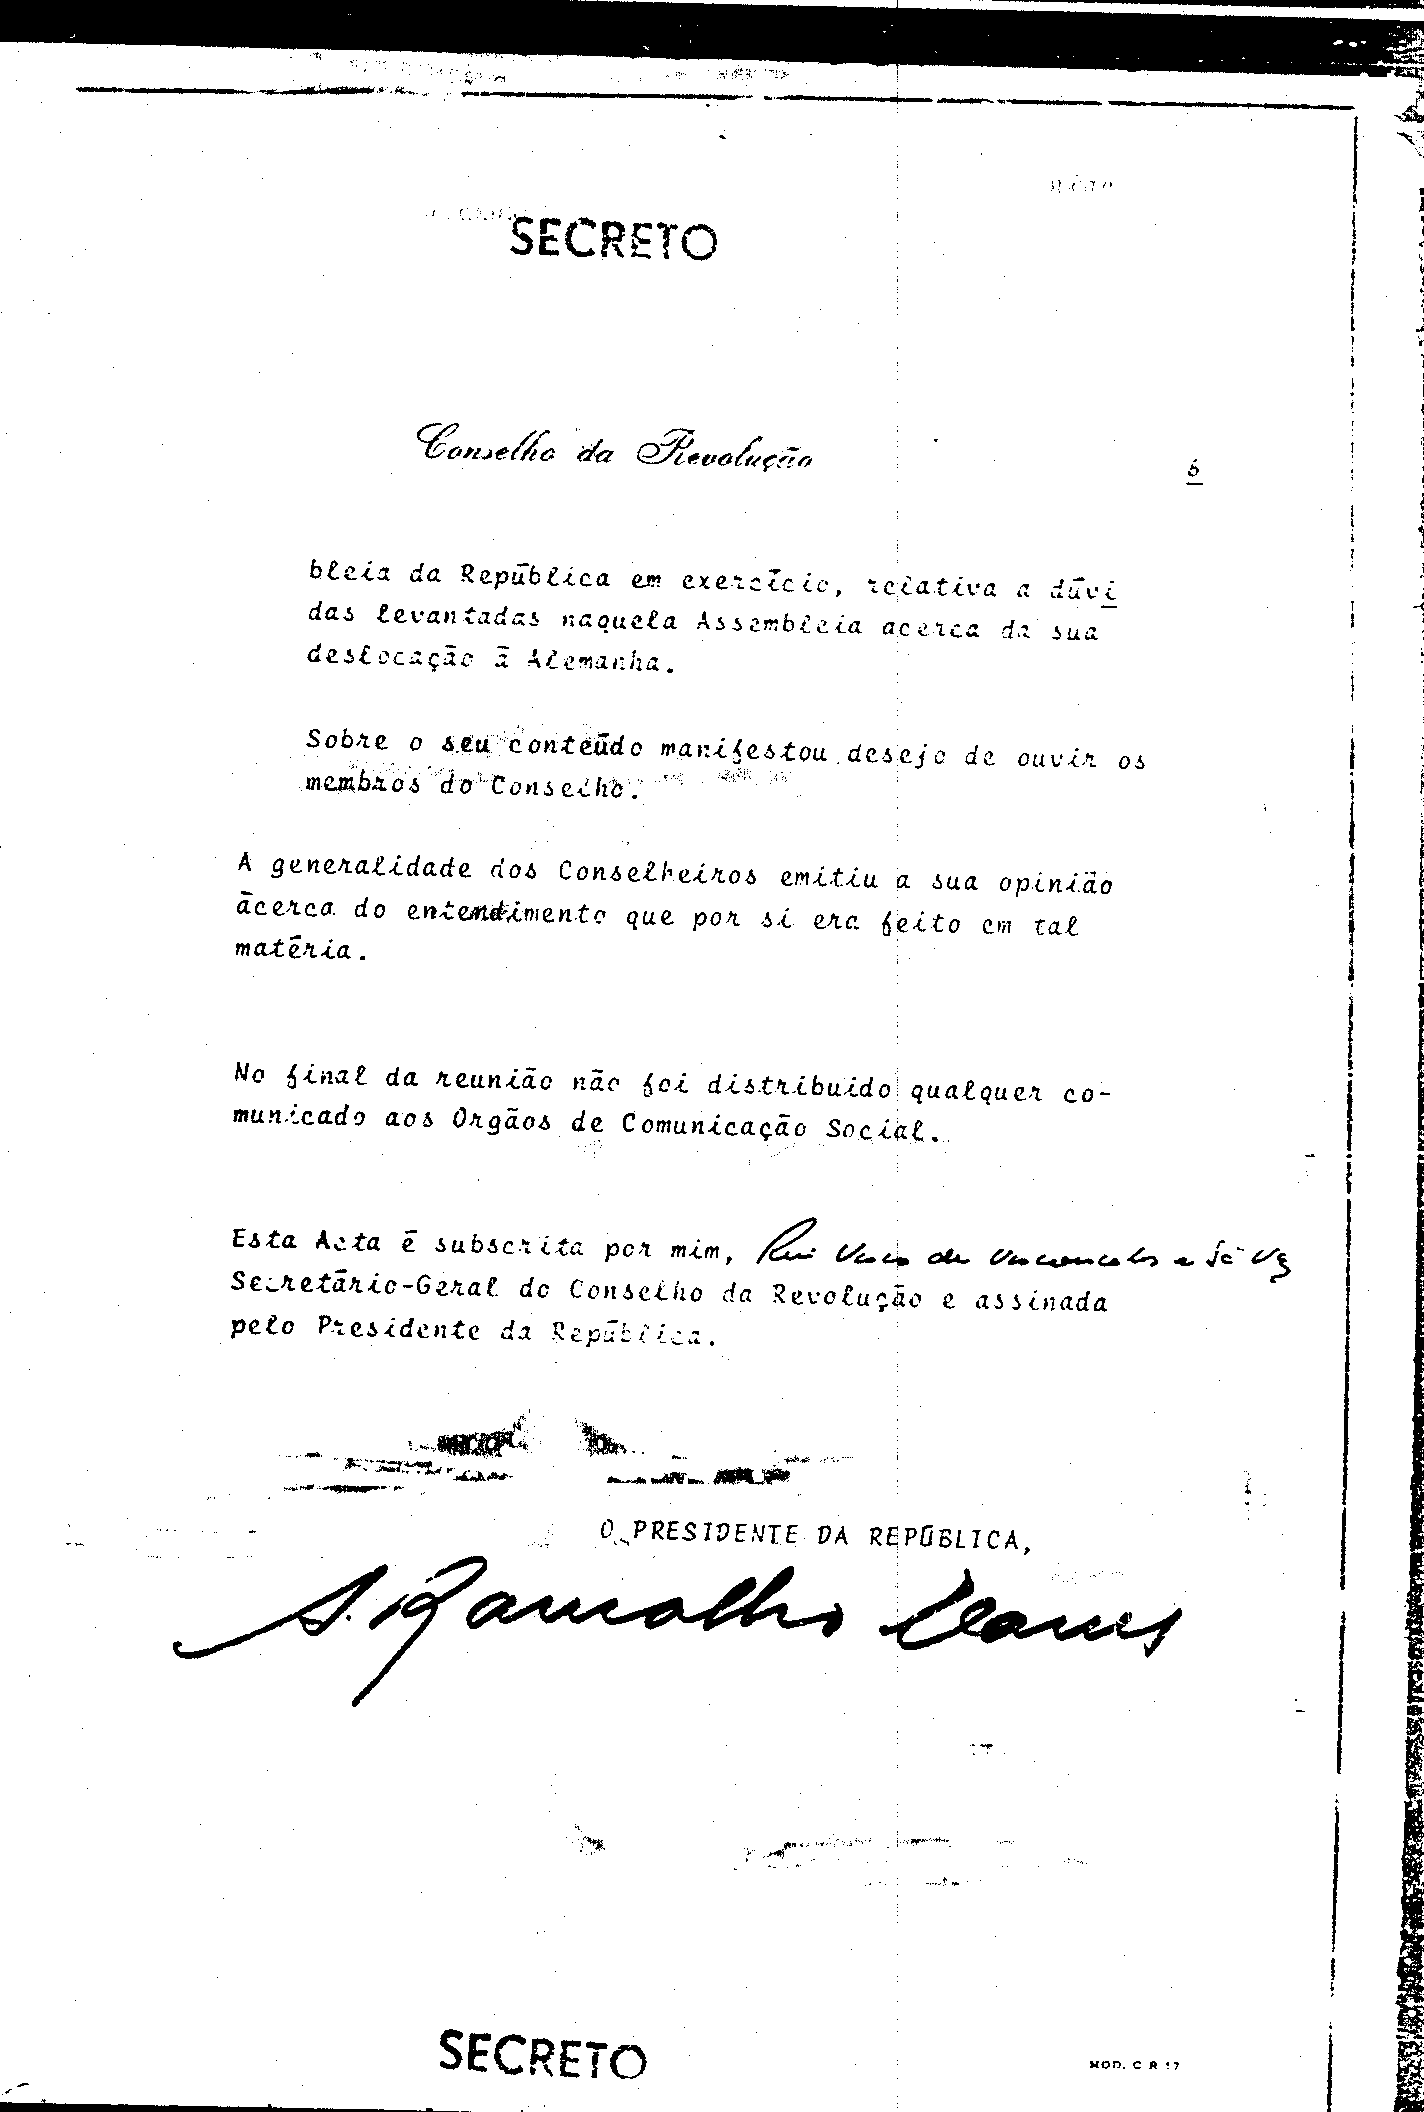 SECRETO
Conselho da Revolução
6
bleia da República em exercício, relativa a dúvi
das levantadas naquela Assembleia acerca da sua
deslocação à Alemanha.
Sobre o seu conteúdo manifestou desejo de ouvir os
membros do Conselho.
A generalidade dos Conselheiros emitiu a sua opinião
àcerca do entendimento que por si era feito em tal
matéria.
No final da reunião não foi distribuido qualquer co-
municado aos Orgãos de Comunicação Social.
Esta Acta é subscrita por mim, Rui Vasco de Vasconcelos e Sá Vaz
Secretário-Geral do Conselho da Revolução e assinada
pelo Presidente da República.
O PRESIDENTE DA REPÚBLICA,
A. Ramalho Eanes
SECRETO
MOD. C R 17